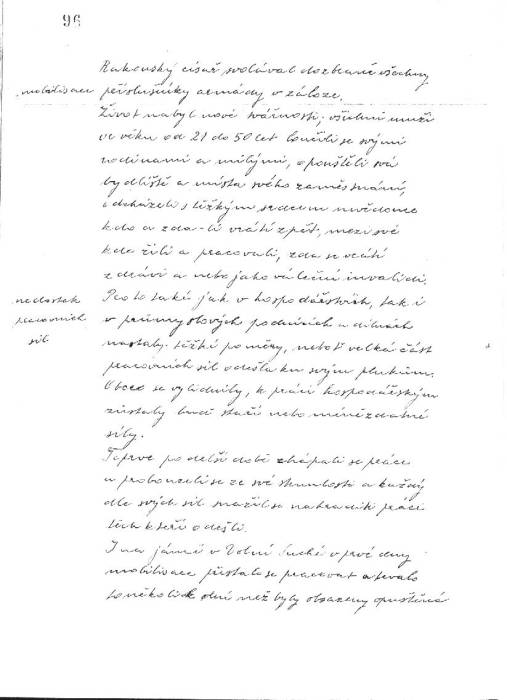 96
Rakouský císař, svolával do zbraně všechny
mobilisace
příslušníky armády v záloze.
Život nabyl nové tvářnosti; všichni muži
ve věku od 21 do 50 let loučili se svými
rodinami a milými, opouštěli svá
bydliště a místa svého zaměstnání,
i odcházeli s těžkým srdcem nevědouce
kdo a zda-li vrátí zpět, mezi své
kde žili a pracovali, zda se vrátí
zdrávi a nebo jako váleční invalidi.
nedostatek
Proto také jak v hospodářstvích, tak i
pracovních
v průmyslových podnicích a dílnách
sil
nastaly těžké poměry, neboť velká část
pracovních sil odešla ku svým plukům.
Obce se vylidnily, k práci hospodářským
zůstaly buď staří nebo méně zdatné
síly.
Teprve po delší době chápali se práce
a probouzeli se ze své strnulosti a každý
dle svých sil snažil se nahraditi práci
těch kteří odešli.
I na jámě v Dolní Suché v prvé dny
mobilisace přestalo se pracovat a trvalo
to několik dní než byly obsazeny opuštěná